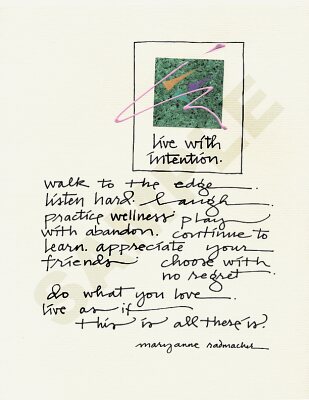 live with
intention.
walk to the edge.
listen hard. laugh.
practice wellness. play
with abandon. continue to
learn. appreciate your
friends. choose with
no regret.
do what you love.
live as if
this is all there is.
maryanne radmacher
SAMPLE